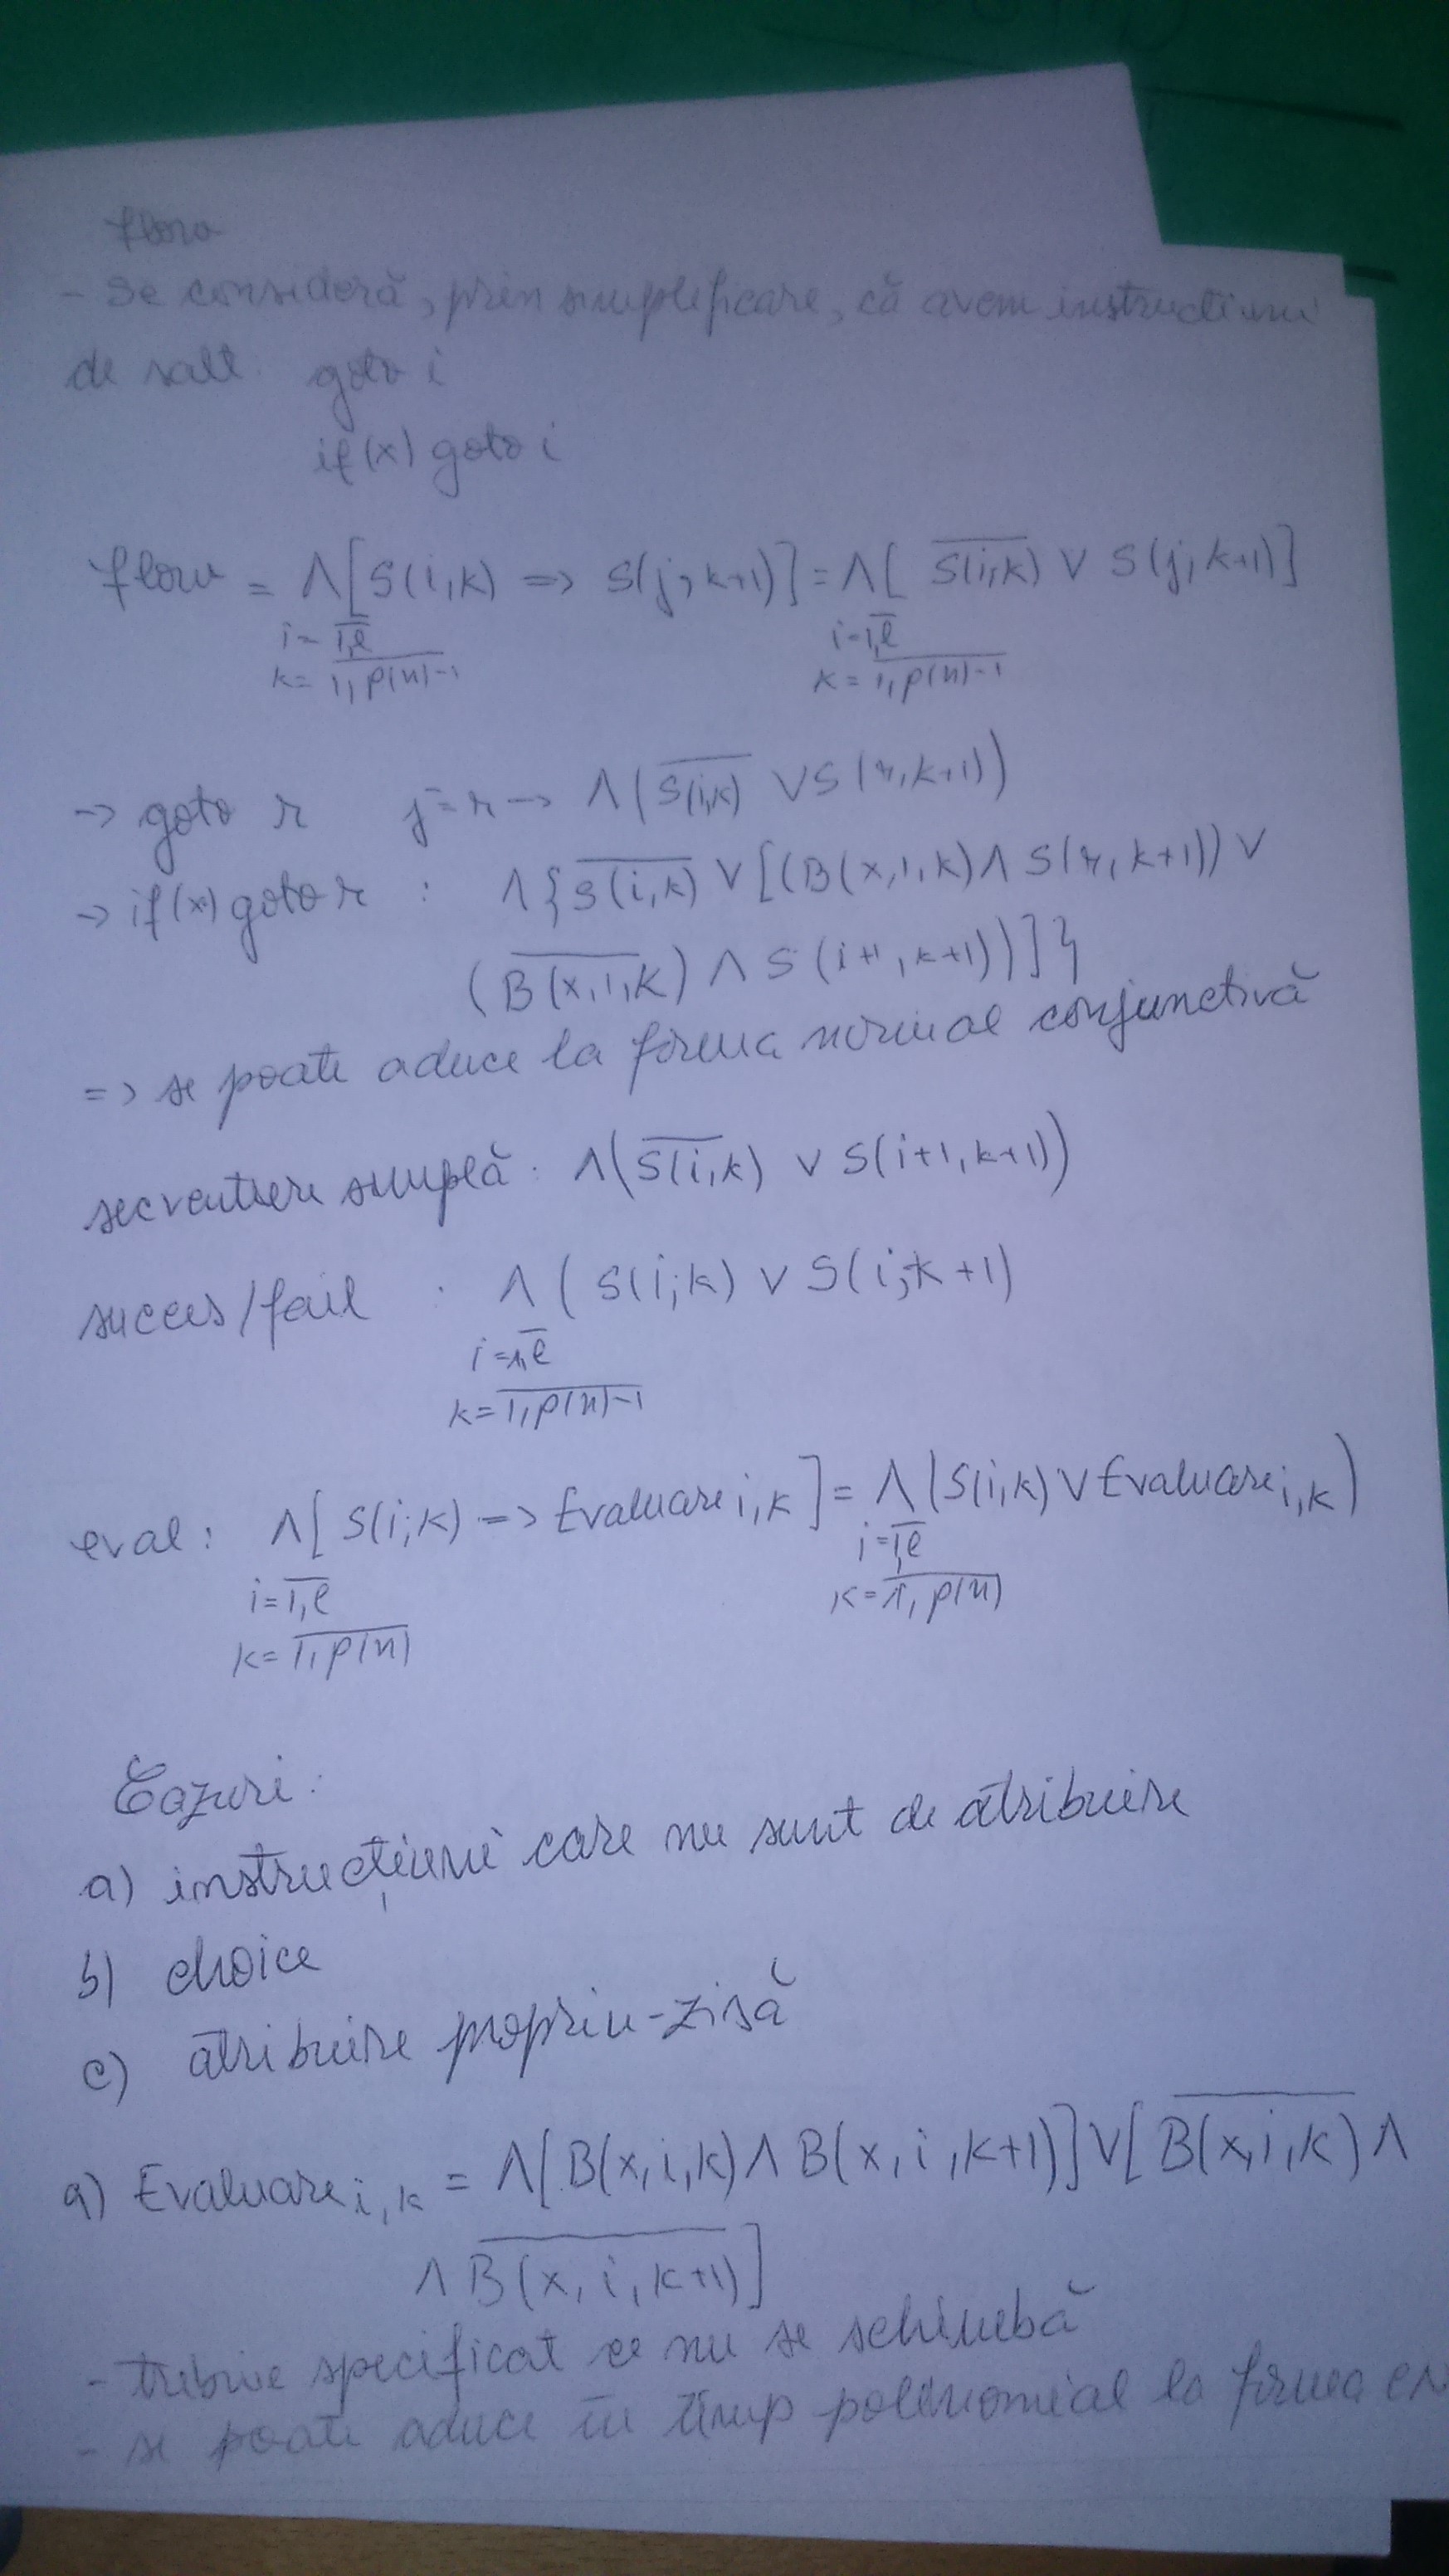 flow
- Se consideră, prin simplificare, că avem instructiuni
de salt: goto i
if(x) goto i
flow = ∧[S(i,k) => S(j,k+1)] = ∧[ S̅(̅i̅,̅k̅)̅ ∨ S(j,k+1)]
i = 1̅,̅l̅ i=1̅,̅l̅
k= 1̅,̅p̅(̅n̅)̅-̅1̅ k = 1̅,̅p̅(̅n̅)̅-̅1̅
-> goto r j=r -> ∧(S̅(̅i̅,̅k̅)̅ ∨ S(r,k+1))
-> if(x) goto r : ∧{S̅(̅i̅,̅k̅)̅ ∨ [(B(x,1,k) ∧ S(r,k+1)) ∨
(B̅(̅x̅,̅1̅,̅k̅)̅ ∧ S(i+1,k+1))]}
=> se poate aduce la forma normal conjunctivă
secvențiere simplă: ∧(S̅(̅i̅,̅k̅)̅ ∨ S(i+1,k+1))
succes/fail : ∧ ( S(i,k) ∨ S(i,k+1)
i=1̅,̅l̅
k=1̅,̅p̅(̅n̅)̅-̅1̅
eval: ∧[ S(i,k) => Evaluare i,k ] = ∧(S(i,k) ∨ Evaluare i,k)
i=1̅,̅l̅ i=1̅,̅l̅
k=1̅,̅p̅(̅n̅)̅ k=1̅,̅p̅(̅n̅)̅
Cazuri:
a) instrucțiuni care nu sunt de atribuire
b) choice
c) atribuire propriu-zisă
a) Evaluare i,k = ∧[B(x,i,k) ∧ B(x,i,k+1)] ∨ [B̅(̅x̅,̅i̅,̅k̅)̅ ∧
∧ B̅(̅x̅,̅i̅,̅k̅+̅1̅)̅]
- trebuie specificat ce nu se schimbă
- se poate aduce în timp polinomial la forma